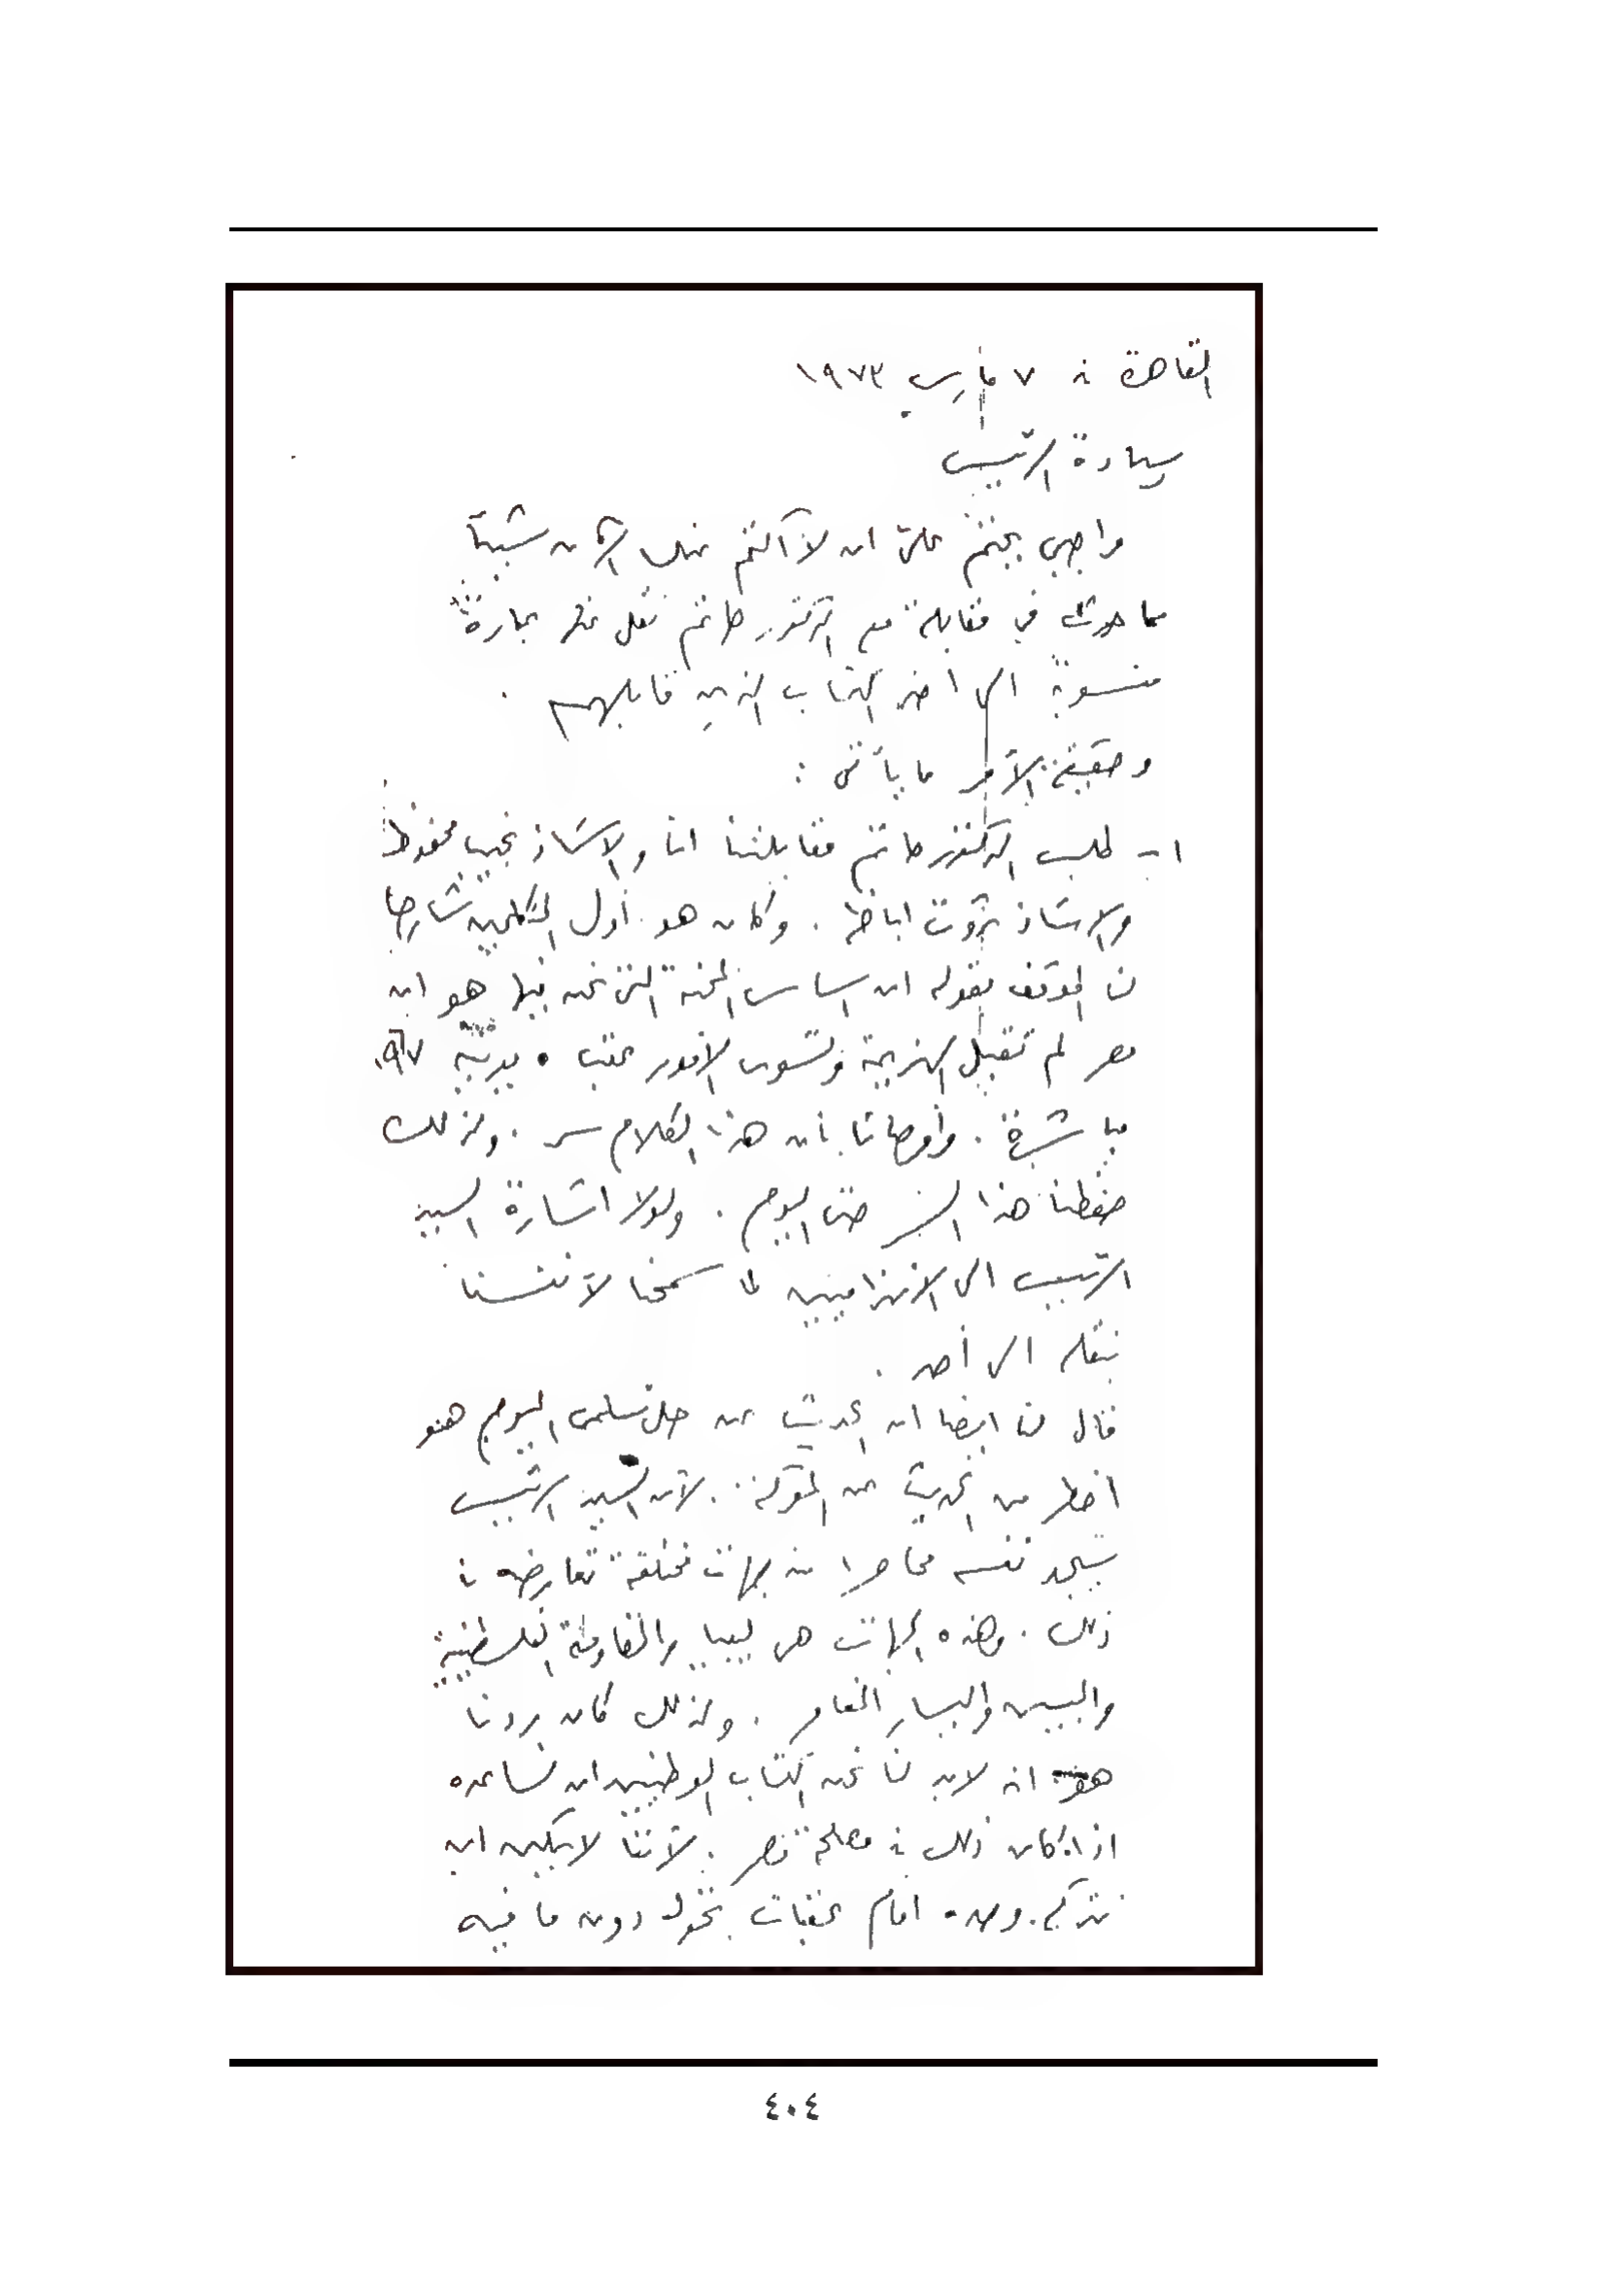 القاهرة في ٧ مارس ١٩٧٣
سيادة الرئيس
واجبي يحتم علىّ ان لا اكتم عنك الآن شيئاً
مما حدث في مقابلة مع الدكتور حاتم نقل عنها عبارة
منسوبة الى احد الكتاب الذين قابلهم .
وحقيقة الأمر ما يأتى :
١ - طلب الدكتور حاتم مقابلتنا انا والاستاذ نجيب محفوظ
والاستاذ ثروت اباظه . وكان هو أول المتكلمين شارحا
لنا الموقف بقوله ان اساس المحنة التى نحن فيها هو ان
مصر لم تقبل الهزيمة وتسوى الأمور عقب ٥ يونيه ١٩٦٧
مباشرة . وأوصانا بأن هذا الكلام سر . ولذلك
حفظنا هذا السر حتى اليوم . ولولا اشارة السيد
الرئيس الى الانهزاميين لما سمحنا لأنفسنا
بنقله الى أحد .
قال لنا ايضا ان الحديث عن حل سلمى اليوم هو
اخطر من الحديث عن المعركة . لأن السيد الرئيس
سيجد نفسه محاصرا من جهات مختلفة تعارضه في
ذلك . وهذه الجهات هى ليبيا والمقاومة الفلسطينية
واليمين واليسار المغامر . ولذلك كان ردنا
هو انه لابد لنا نحن الكتاب الوطنيين ان نساعده
اذا كان ذلك في مصلحة مصر . لأننا لا يمكن ان
نتركه وحده امام عقبات تحول دون ما فيه
٤٠٤